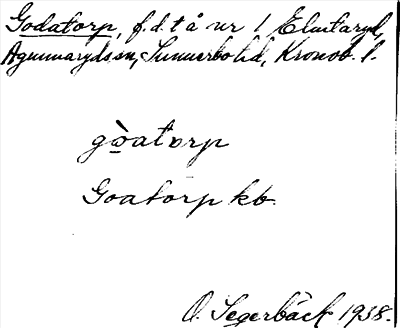 Godatorp, f.d. t å nr 1 Elmtaryd,
Agunnaryds sn, Sunnerbo hd, Kronob. l.
gòatorp
Goatorp kb.
O. Segerbäck 1938.